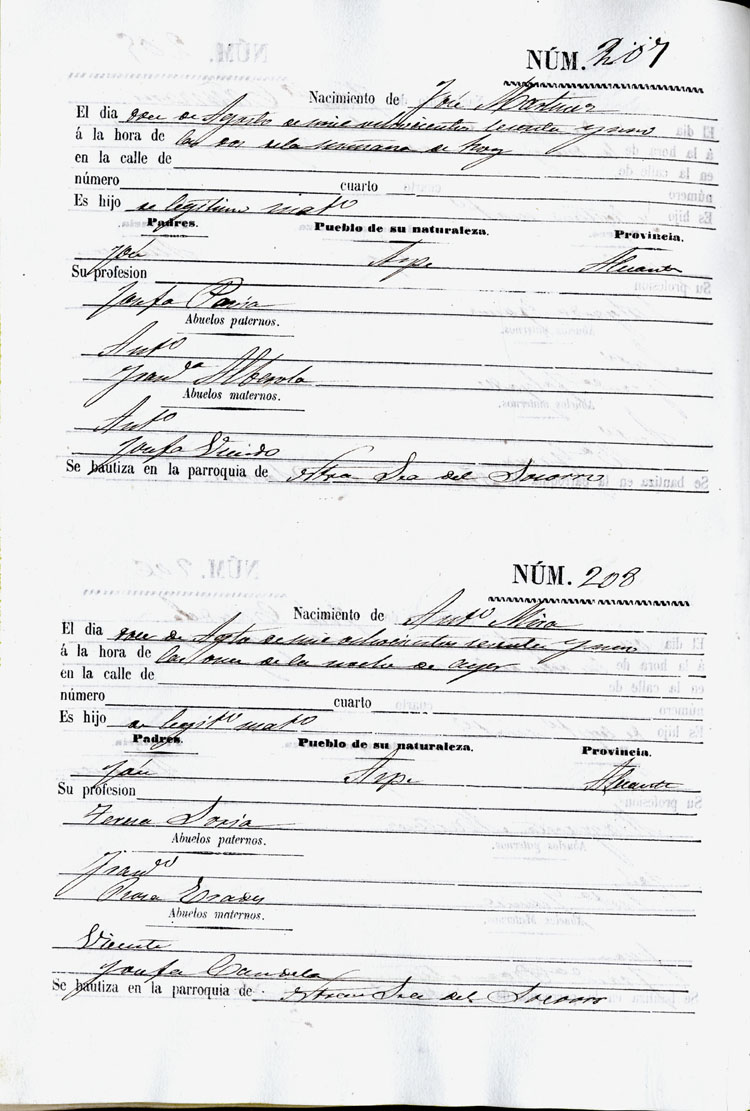 NÚM. 207
Nacimiento de José Martinez
El dia doce de Agosto de mil ochocientos sesenta y uno
á la hora de las dos de la mañana de hoy
en la calle de
número cuarto
Es hijo de legitimo matº
Padres. Pueblo de su naturaleza. Provincia.
José Aspe Alicante
Su profesion
Josefa
Abuelos paternos.
Antº
Franª Alberola
Abuelos maternos.
Antº
Josefa Vicedo
Se bautiza en la parroquia de Ntra Sra del Socorro
NÚM. 208
Nacimiento de Antº Mira
El dia doce de Agto de mil ochocientos sesenta y uno
á la hora de las once de la noche de ayer
en la calle de
número cuarto
Es hijo de legitº matº
Padres. Pueblo de su naturaleza. Provincia.
Aspe Alicante
Su profesion
Teresa Soria
Abuelos paternos.
Franº
Rosa
Abuelos maternos.
Vicente
Josefa Candela
Se bautiza en la parroquia de Ntra Sra del Socorro